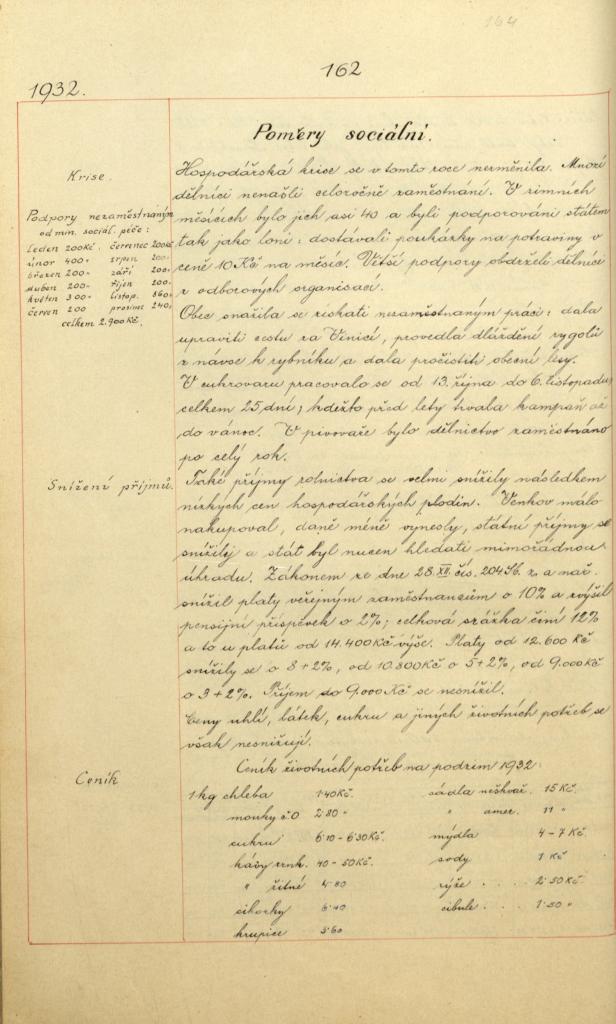 164
162
1932.
Poměry sociální.
Krise.
Hospodářská krise se v tomto roce nezměnila. Mnozí
dělníci nenašli celoročně zaměstnání. V zimních
měsících bylo jich asi 40 a byli podporováni státem
tak jako loni: dostávali poukázky na potraviny v
ceně 10 Kč na měsíc. Větší podpory obdrželi dělníci
z odborových organisací.
Podpory nezaměstnaným
od min. sociál. péče:
leden 200 Kč. červenec 200 Kč
únor 400 " srpen 200 "
březen 200 " září 200 "
duben 200 " říjen 200 "
květen 300 " listop. 360 "
červen 200 prosinec 240 "
celkem 2.900 Kč.
Obec snažila se získati nezaměstnaným práci: dala
upraviti cestu za Vinicí, provedla dláždění rygolů
z návse k rybníku a dala pročistiti obecní lesy.
V cukrovaru pracovalo se od 13. října do 6. listopadu
celkem 25 dní; kdežto před lety trvala kampaň až
do vánoc. V pivovaře bylo dělnictvo zaměstnáno
po celý rok.
Snížení příjmů.
Také příjmy rolnictva se velmi snížily následkem
nízkých cen hospodářských plodin. Venkov málo
nakupoval, daně méně vynesly, státní příjmy se
snížily a stát byl nucen hledati mimořádnou
úhradu. Zákonem ze dne 28. XII. čís. 204 Sb. z. a nař.
snížil platy veřejným zaměstnancům o 10% a zvýšil
pensijní příspěvek o 2%; celková srážka činí 12%
a to u platů od 14.400 Kč výše. Platy od 12.600 Kč
snížily se o 8+2%, od 10.800 Kč o 5+2%, od 9.000 Kč
o 3+2%. Příjem do 9.000 Kč se nesnížil.
Ceny uhlí, látek, cukru a jiných životních potřeb se
však nesnižují.
Ceník
Ceník životních potřeb na podzim 1932:
1 kg chleba 1·40 Kč. sádla neškvař. 15 Kč.
mouky č. 0 2·80 " " amer. 11 "
cukru 6·10 - 6·30 Kč. mýdla 4 - 7 Kč
kávy zrnk. 40 - 50 Kč. sody 1 Kč
" žitné 4·80 rýže . . . 2·50 Kč.
cikorky 6·40 cibule . . . 1·50 "
krupice 3·60